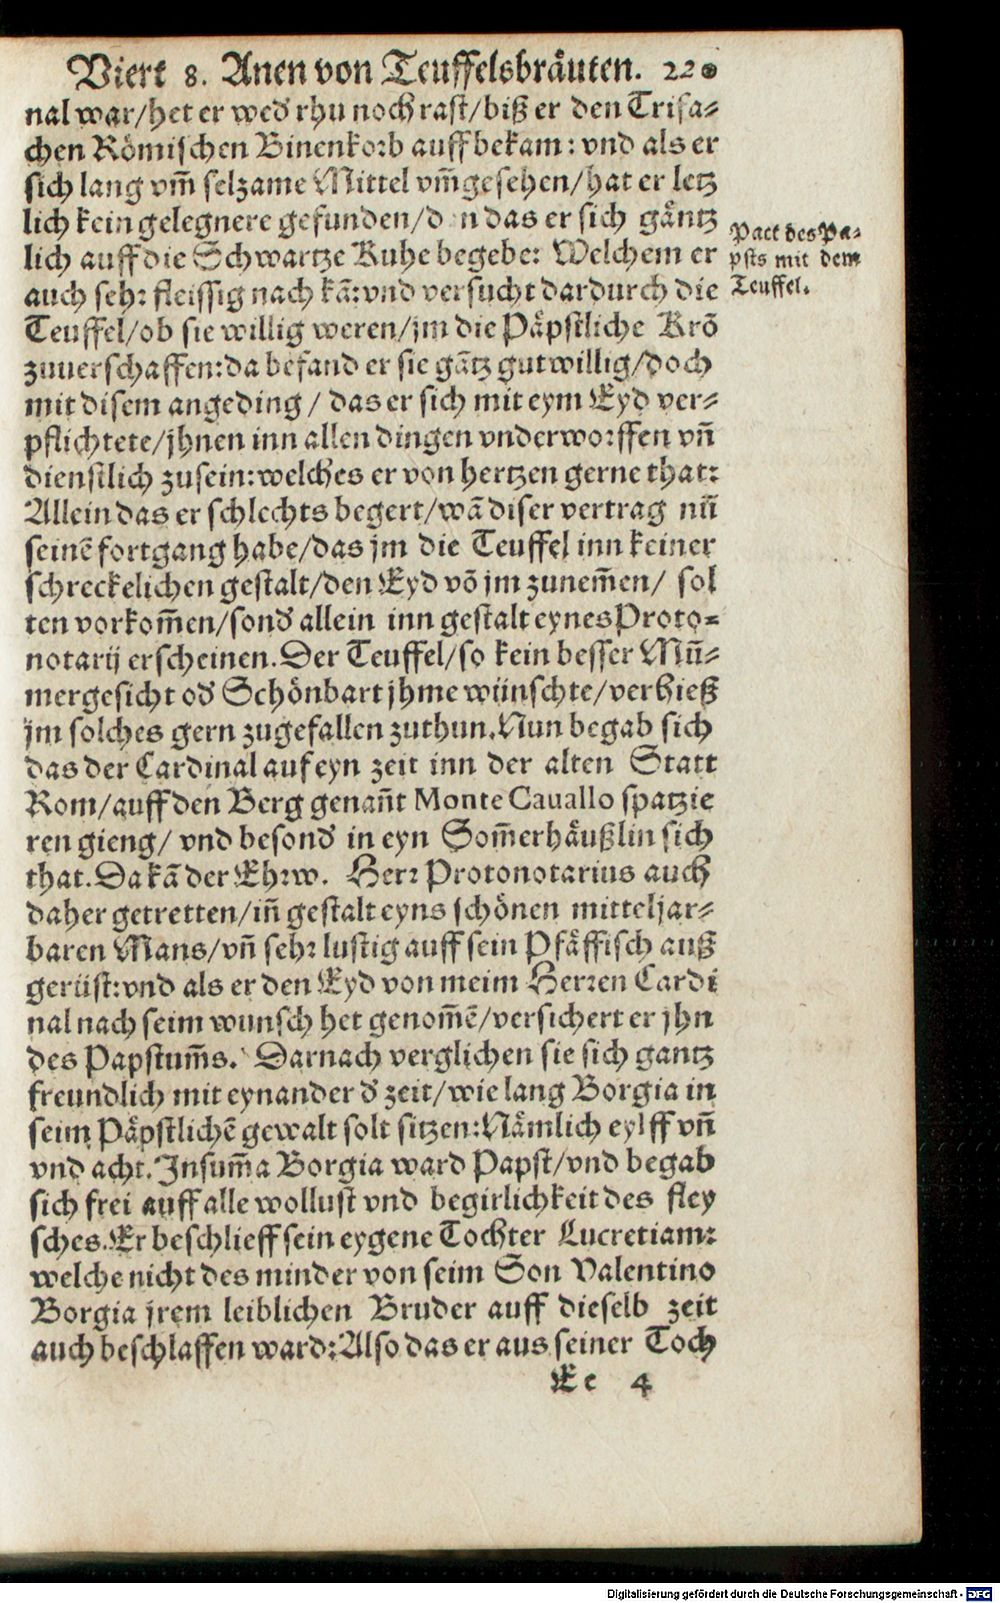 Viert 8. Anen von Teuffelsbräuten. 220
nal war/het er wed̕ rhu noch rast/biß er den Trifa-
chen Römischen Binenkorb auff bekam: vnd als er
sich lang vm̃ selzame Mittel vm̃gesehen/hat er letz
lich kein gelegnere gefunden/ das er sich gäntz
lich auff die Schwartze Kuhe begebe: Welchem er
auch sehr fleissig nach kã: vnd versucht dardurch die
Teuffel/ob sie willig weren/jm die Päpstliche Krõ
zuuerschaffen: da befand er sie gãtz gutwillig/doch
mit disem angeding/ das er sich mit eym Eyd ver-
pflichtete/jhnen inn allen dingen vnderworffen vñ
dienstlich zusein: welches er von hertzen gerne that:
Allein das er schlechts begert/wã diser vertrag nũ
seinẽ fortgang habe/das jm die Teuffel inn keiner
schreckelichen gestalt/den Eyd võ jm zunem̃en/ sol
ten vorkom̃en/sond̕ allein inn gestalt eynes Proto-
notarij erscheinen. Der Teuffel/so kein besser Mũ-
mergesicht od̕ Schönbart jhme wünschte/verhieß
jm solches gern zugefallen zuthun. Nun begab sich
das der Cardinal auf eyn zeit inn der alten Statt
Rom/auff den Berg genañt Monte Cauallo spatzie
ren gieng/ vnd besond̕ in eyn Som̃erhäußlin sich
that. Da kã der Ehrw. Herr Protonotarius auch
daher getretten/iñ gestalt eyns schönen mitteljar-
baren Mans/vñ sehr lustig auff sein Pfäffisch auß
gerüst: vnd als er den Eyd von meim Herren Cardi
nal nach seim wunsch het genom̃ẽ/versichert er jhn
des Papstum̃s. Darnach verglichen sie sich gantz
freundlich mit eynander d̕ zeit/wie lang Borgia in
seim Päpstlichẽ gewalt solt sitzen: Nämlich eylff vñ
vnd acht. Insum̃a Borgia ward Papst/vnd begab
sich frei auff alle wollust vnd begirlichkeit des fley
sches. Er beschlieff sein eygene Tochter Lucretiam:
welche nicht des minder von seim Son Valentino
Borgia jrem leiblichen Bruder auff dieselb zeit
auch beschlaffen ward: Also das er aus seiner Toch
Ee 4
Pact des Pa-
psts mit dem
Teuffel.
Digitalisierung gefördert durch die Deutsche Forschungsgemeinschaft - DFG